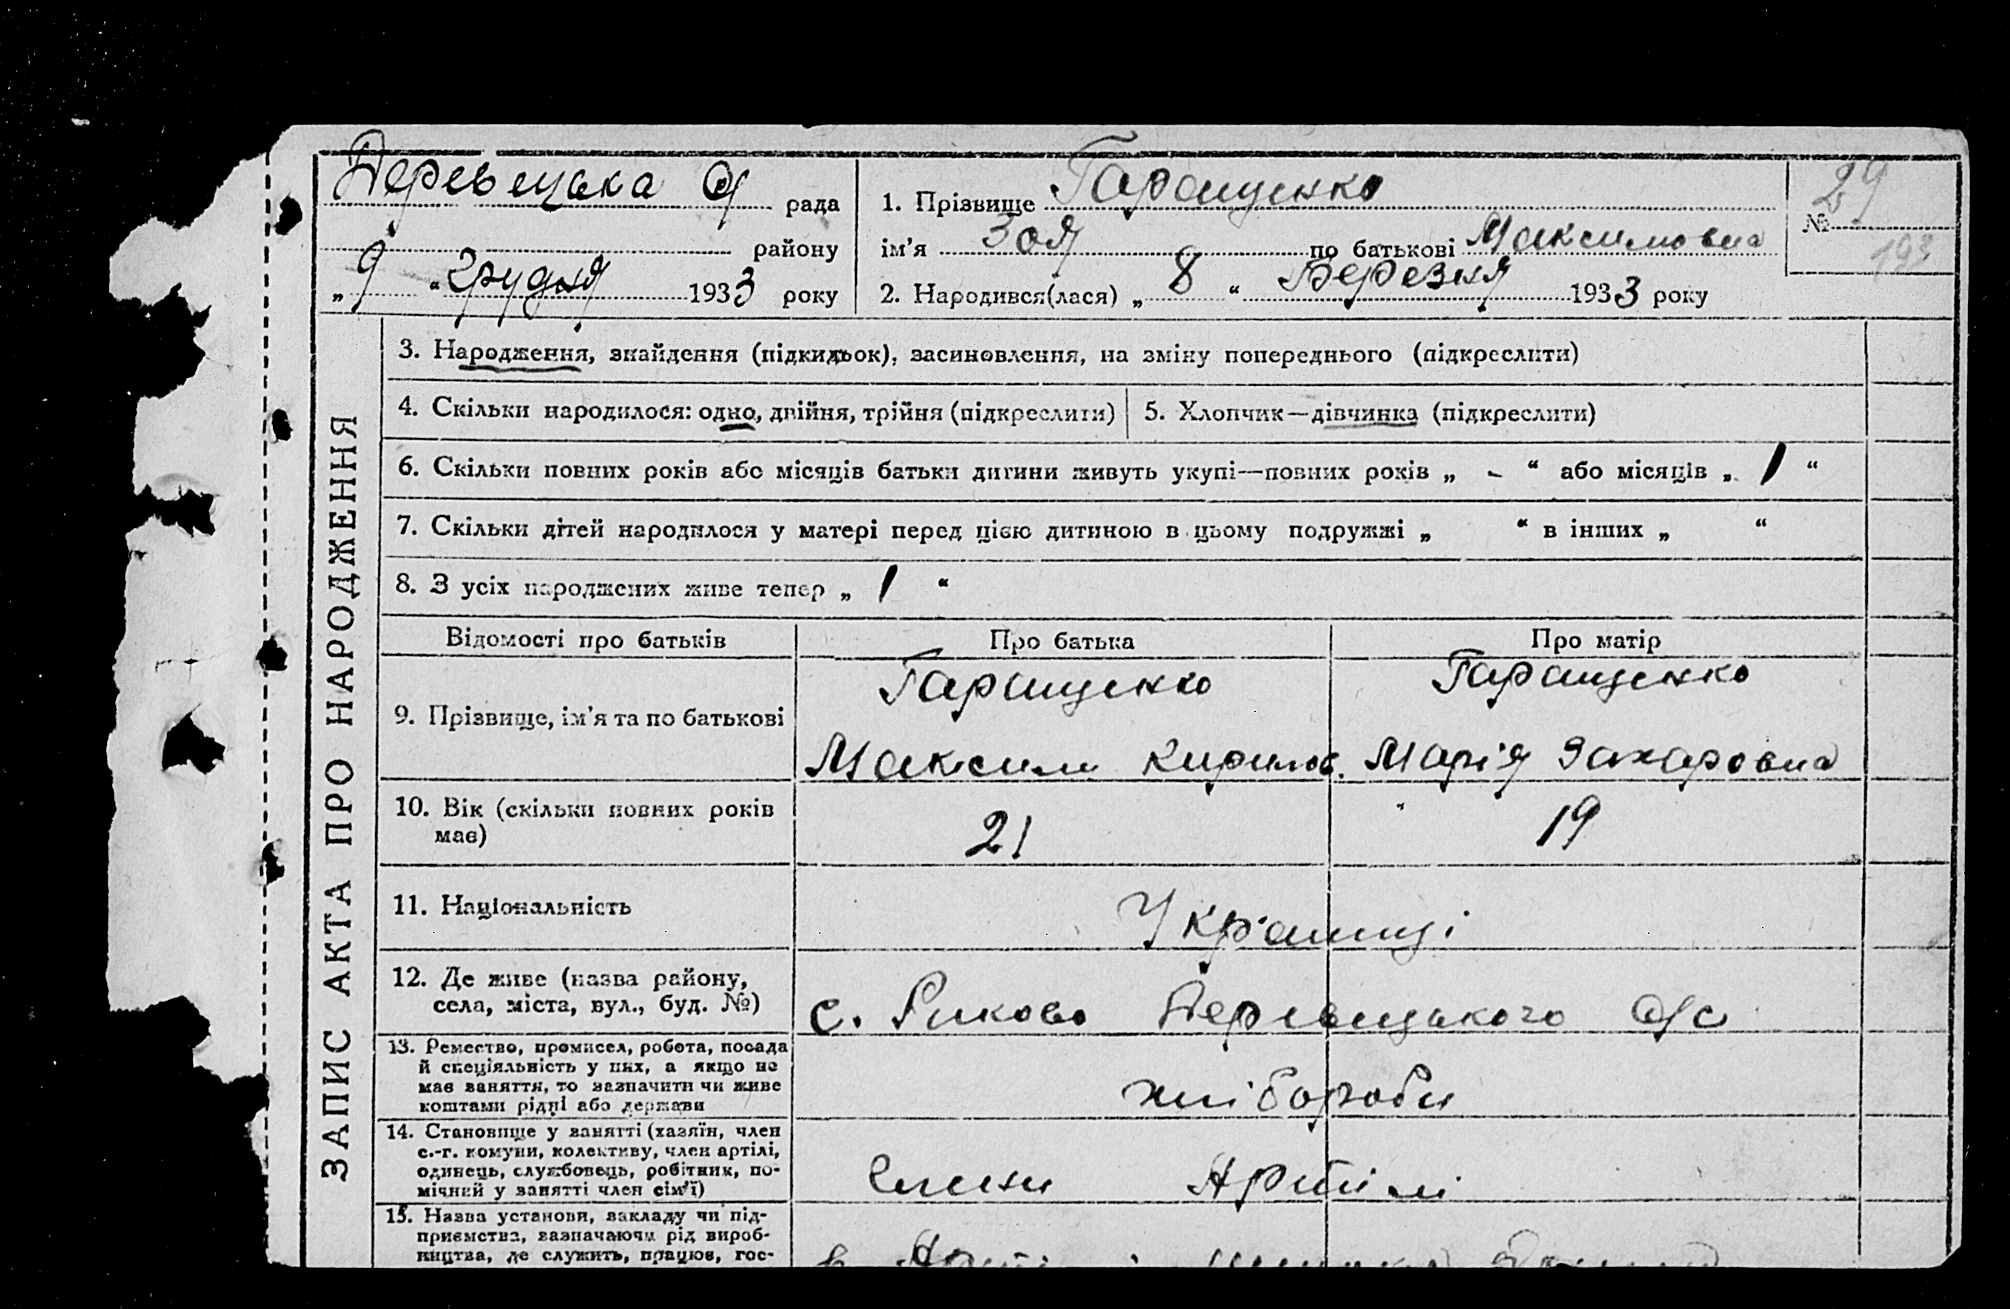 Деревецька С/ рада
району
„ 9 “ Грудня 1933 року
1. Прізвище Гаращенко
ім’я Зоя по батькові Максимовна
2. Народився(лася) „ 8 “ Березня 1933 року
№ 29
193
ЗАПИС АКТА ПРО НАРОДЖЕННЯ
3. Народження, знайдення (підкидьок), засиновлення, на зміну попереднього (підкреслити)
4. Скільки народилося: одно, двійня, трійня (підкреслити)
5. Хлопчик—дівчинка (підкреслити)
6. Скільки повних років або місяців батьки дитини живуть укупі—повних років „ - “ або місяців „ 1 “
7. Скільки дітей народилося у матері перед цією дитиною в цьому подружжі „ “ в інших „ “
8. З усіх народжених живе тепер „ 1 “
Відомості про батьків
Про батька
Про матір
9. Прізвище, ім’я та по батькові
Гаращенко
Максим Кирилов.
Гаращенко
Марія Захаровна
10. Вік (скільки повних років
має)
21
19
11. Національність
Українці
12. Де живе (назва району,
села, міста, вул., буд. №)
с. Риково Деревецького С/с
13. Ремество, промисел, робота, посада
й спеціяльність у них, а якщо не
має заняття, то зазначити чи живе
коштами рідні або держави
хлібороби
14. Становище у занятті (хазяїн, член
с.-г. комуни, колективу, член артілі,
одинець, службовець, робітник, по-
мічний у занятті член сім’ї)
Члени Артілі
15. Назва установи, закладу чи під-
приємства, зазначаючи рід вироб-
ництва, де служить, працює, гос-
в